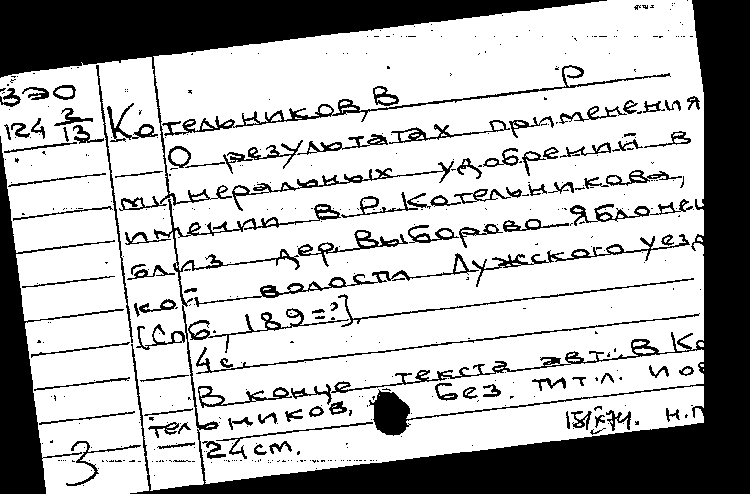 ВЭО
124 2/13
Котельников, В Р
О результатах применения
минеральных удобрений в
имении В. Р. Котельникова,
близ дер. Выборово Яблонец
кой волости Лужского уезд
[Спб., 189=?].
4 с.
В конце текста авт.: В Ко
тельников. Без. тит. л. и об
24 см.
3